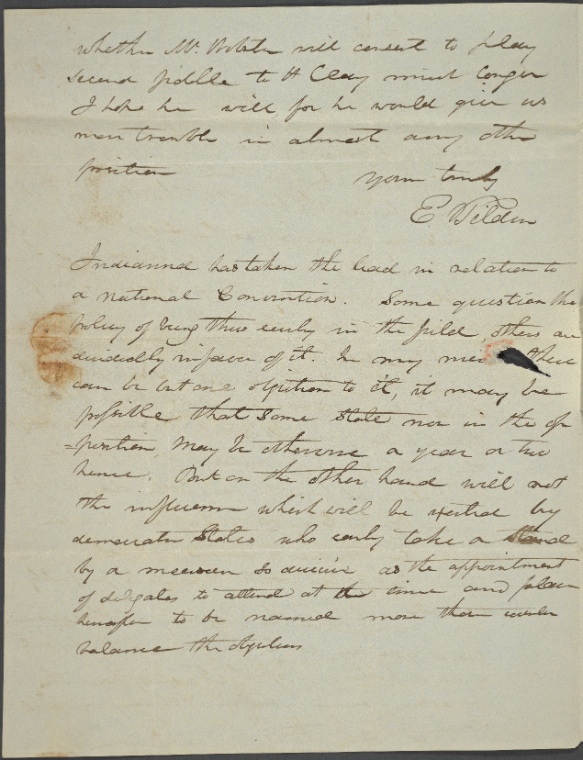 whether Mr. Webster will consent to play
second fiddle to H Clay much longer
I hope he will, for he would give us
more trouble in almost any other
position
yours truly
E Tilden
Indianna has taken the lead in relation to
a national Convention. Some question the
policy of being thus early in the field, others are
decidedly in favor of it. In my there
can be but one objection to it, it may be
possible that some State now in the op
=position, may be otherwise a year or two
hence. But on the other hand will not
the influence which will be exerted by
democratic States who early take a stand
by a measure so decisive as the appointment
of delgates to attend at the time and place
hereafter to be named more than counter
balance the objection